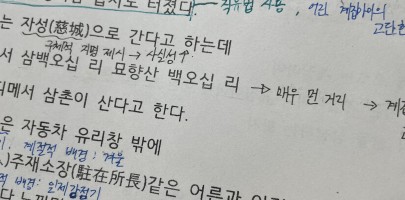 럼 터졌다. → 직유법 사용, 어린 계집아이의
고단한
는 자성(慈城)으로 간다고 하는데
구체적 지명 제시 → 사실성↑
서 삼백오십 리 묘향산 백오십 리 → 매우 먼 거리 →
디메서 삼촌이 산다고 한다.
은 자동차 유리창 밖에
계절적 배경: 겨울
주재소장(駐在所長)같은 어른과
적 배경: 일제강점기